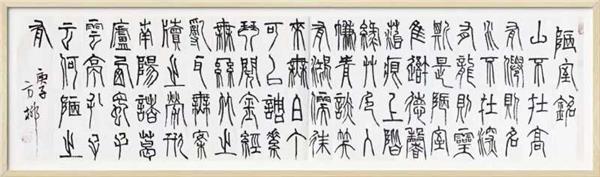 陋室銘
山不在高
有僊則名
水不在深
有龍則靈
斯是陋室
惟吾德馨
苔痕上階
綠草色入
簾青談笑
有鴻儒往
來無白丁
可以調素
琴閱金經
無絲竹之
亂耳無案
牘之勞形
南陽諸葛
廬西蜀子
雲亭孔子
云何陋之
有
庚子
方